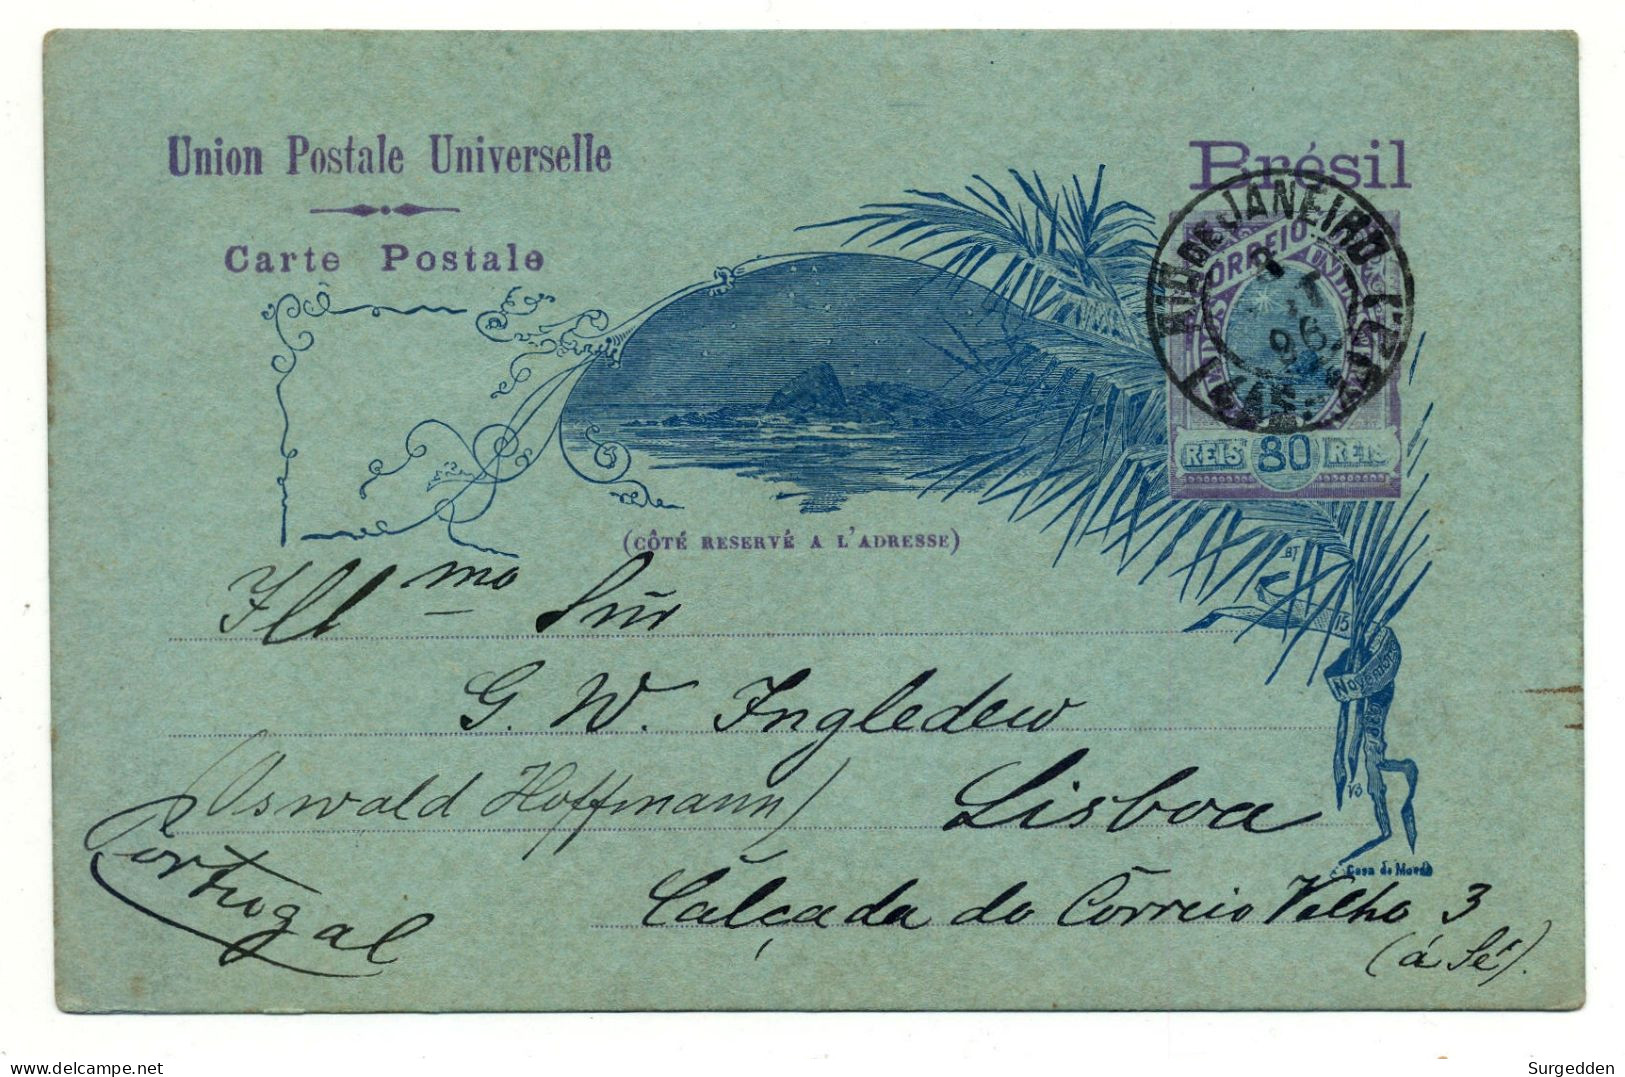 Union Postale Universelle
Carte Postale
Brésil
RIO DE JANEIRO
CORREIO
96
REIS 80 REIS
(CÔTÉ RESERVÉ A L'ADRESSE)
BT
15
Novembro
Casa da Moeda
Illmo Snr
G. W. Ingledew
(Oswald Hoffmann)
Lisboa
Portugal
Calçada do Correio Velho 3
(á Sé).
delcampe.net
Surgedden